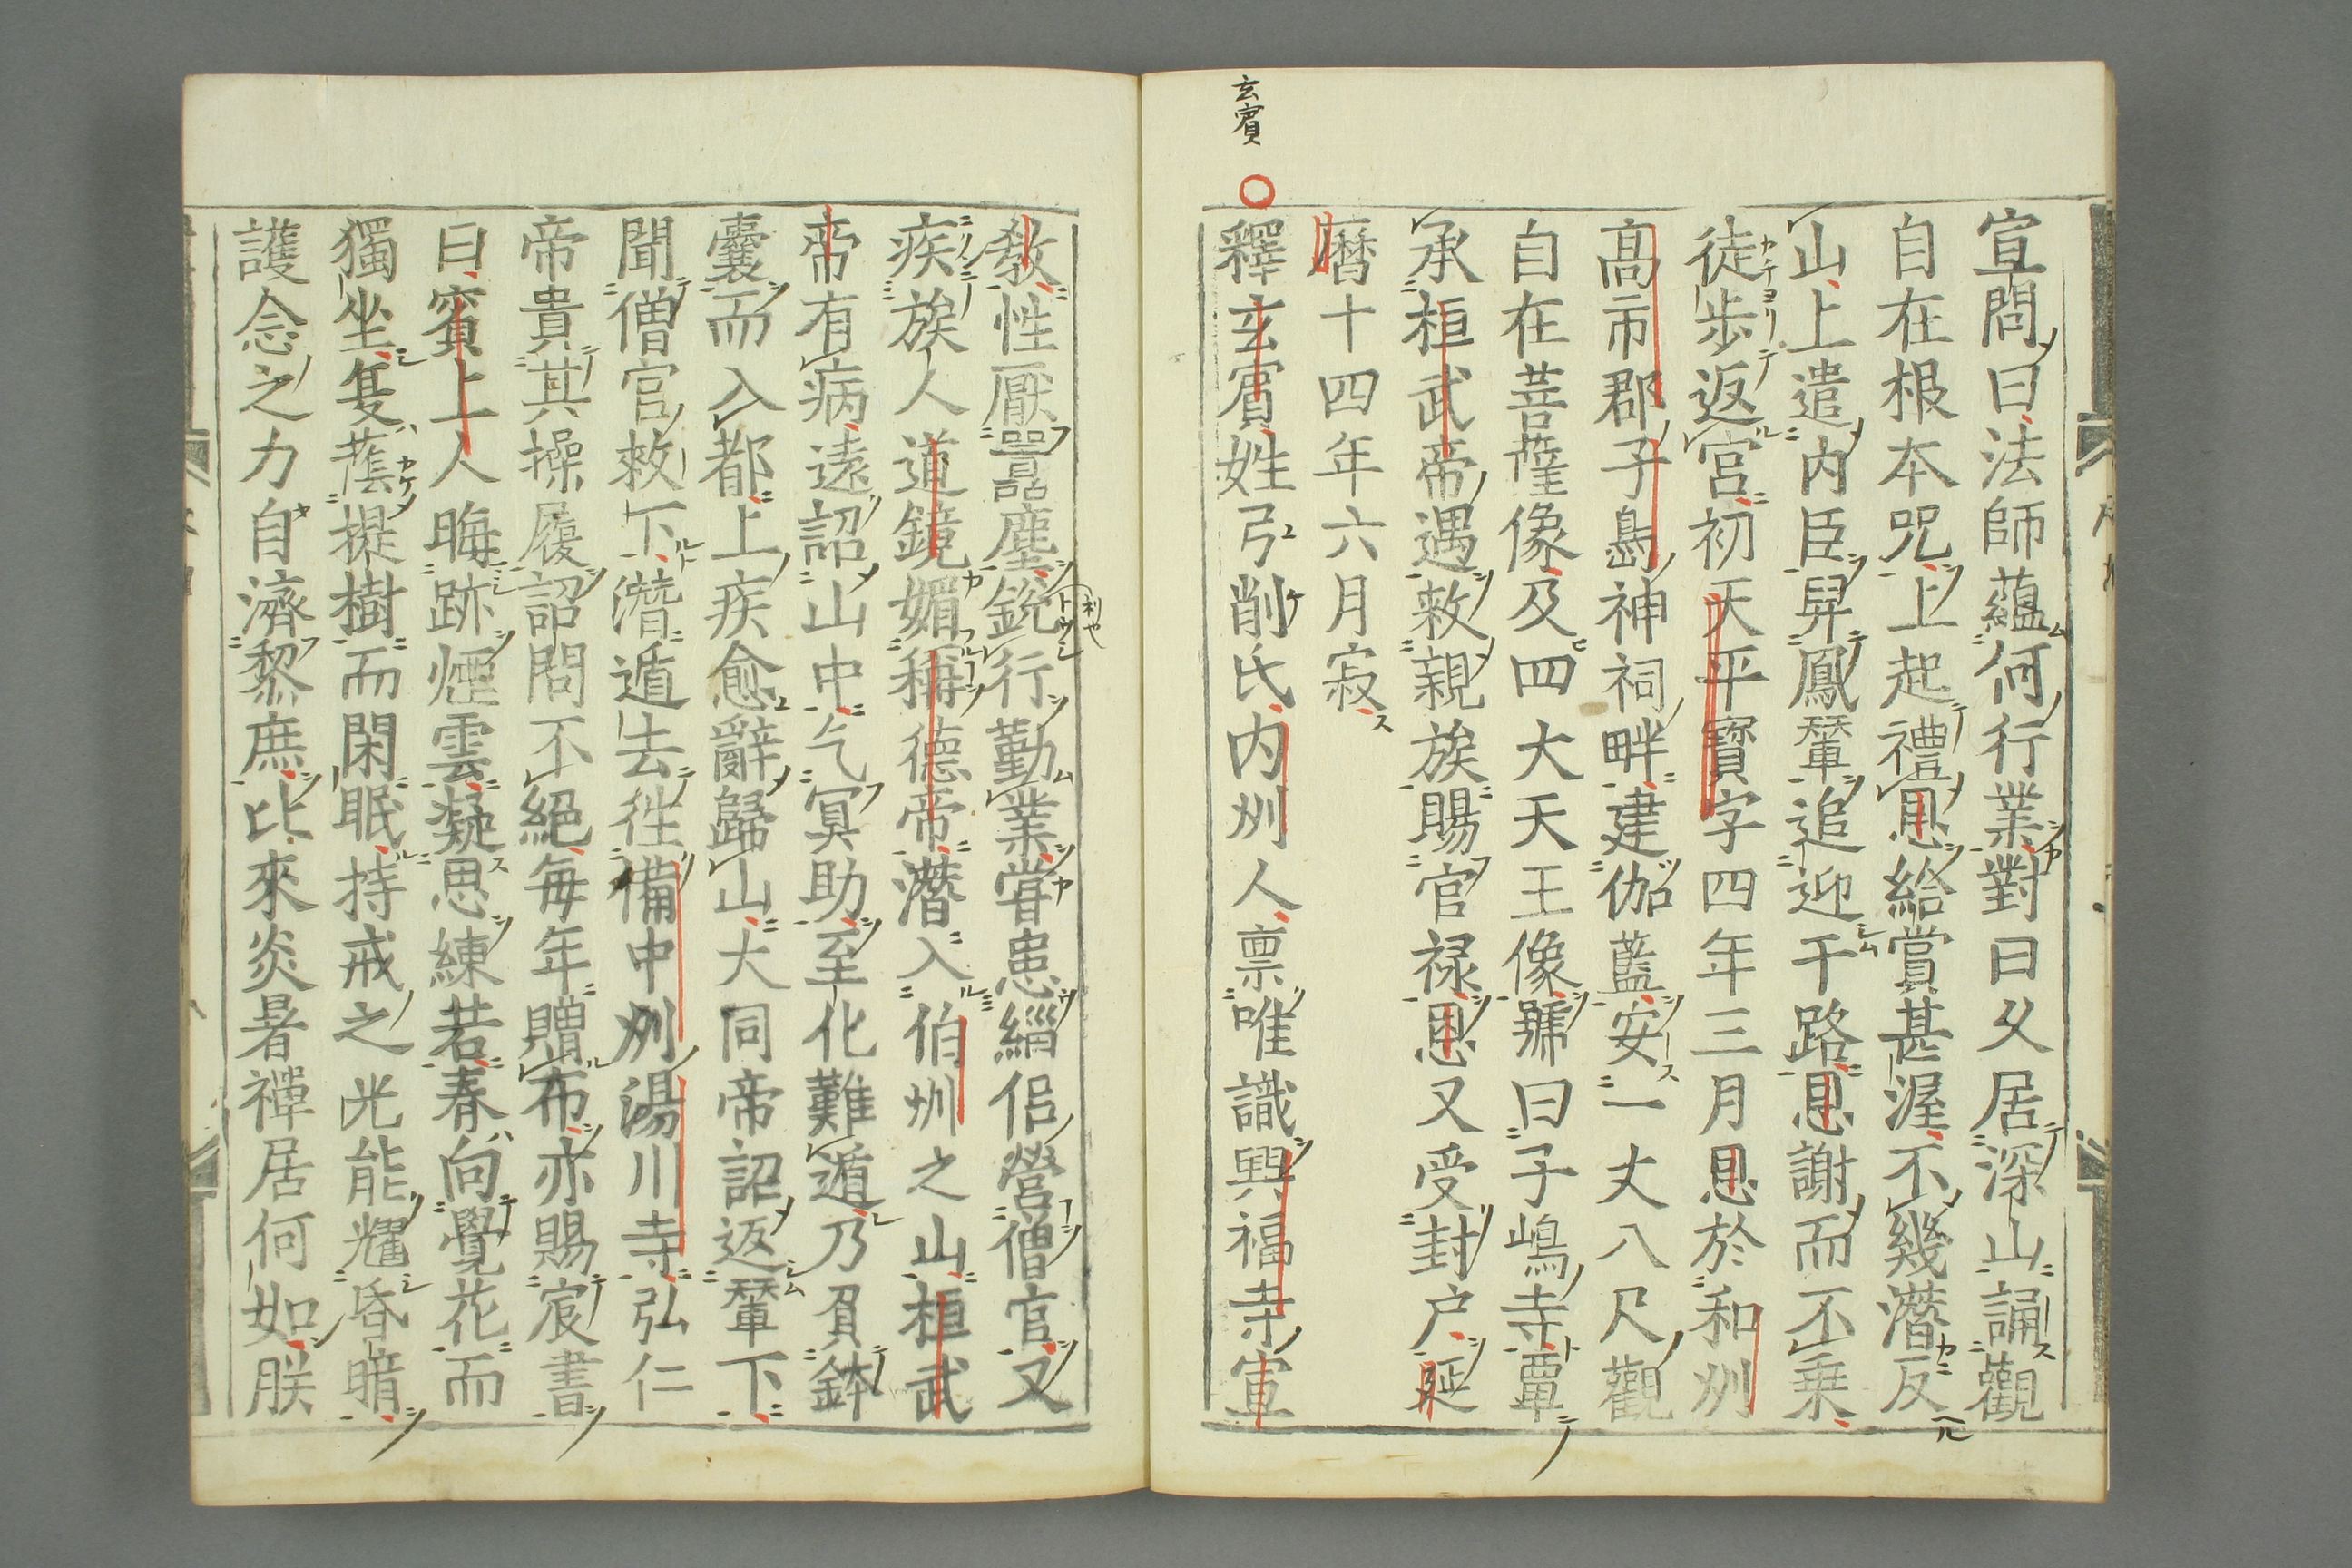 玄賓
宣問曰法師蘊何行業對曰久居深山誦觀
自在根本咒上起禮恩給賞甚渥不幾潛反
山上遣内臣舁鳳輦追迎于路恩謝而不乗
徒歩返宮初天平寳字四年三月恩於和州
髙市郡子島神祠畔建伽藍安一丈八尺觀
自在菩薩像及四大天王像號曰子嶋寺覃
承桓武帝遇敕親族賜官禄恩又受封户延
暦十四年六月寂
釋玄賓姓弓削氏内州人禀唯識興福寺宣
敎性厭囂塵銳行勤業甞患緇侣營僧官又
疾族人道鏡媚稱德帝潛入伯州之山桓武
帝有病遠詔山中乞冥助至化難遁乃負鉢
囊而入都上疾愈辭歸山大同帝詔返輦下
聞僧官敕下潛遁去往備中州湯川寺弘仁
帝貴其操履詔問不絕每年贈布亦賜宸書
曰賓上人晦跡煙雲凝思練若春向覺花而
獨坐夏蔭提樹而閑眠持戒之光能耀昏暗
護念之力自濟黎庶比來炎暑禪居何如朕